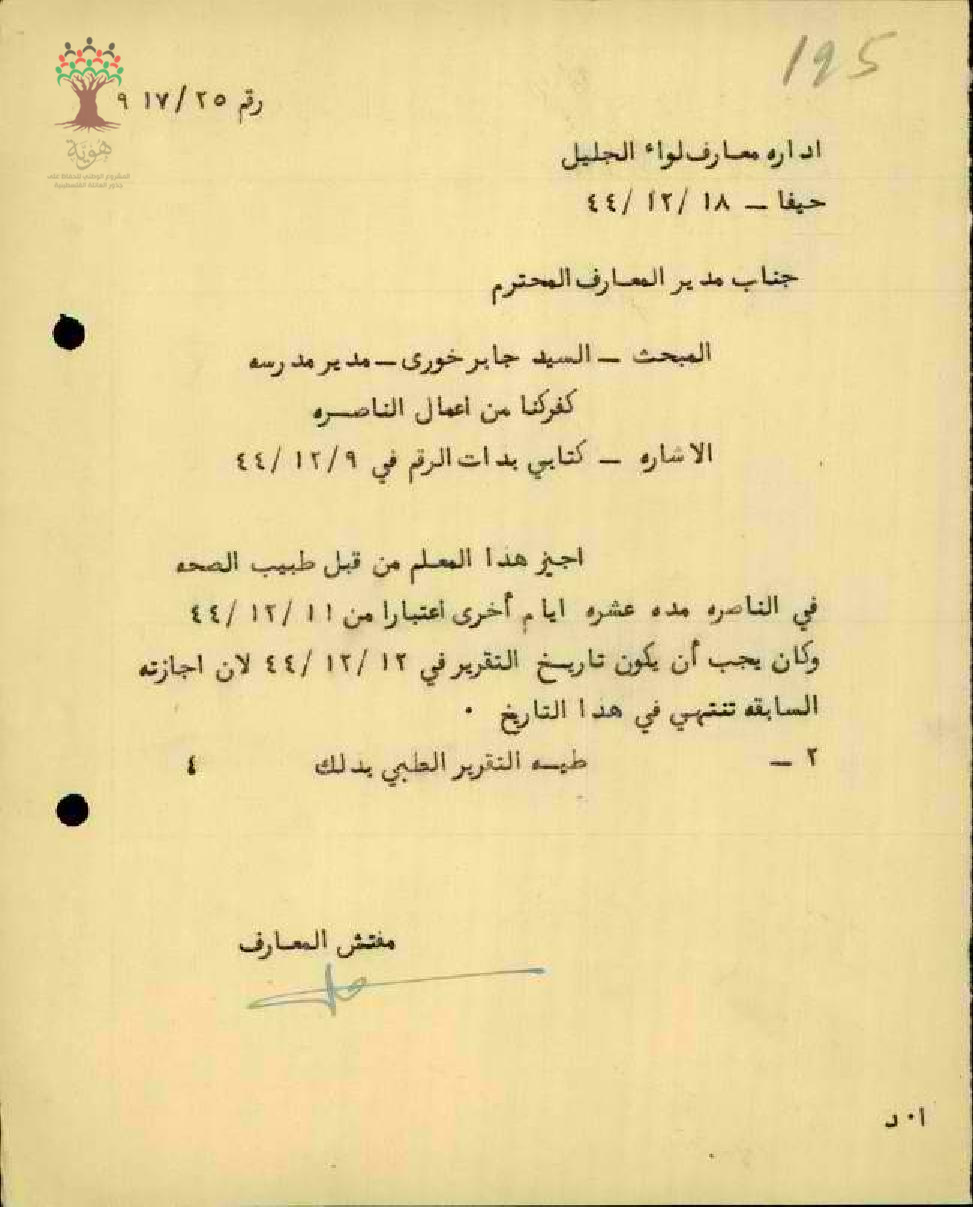 195
رقم ٢٥/ ١٧ ٩
هوية
المشروع الوطني للحفاظ على
جذور العائلة الفلسطينية
اداره معارف لواء الجليل
حيفا ـ ١٨ /١٢ /٤٤
جناب مدير المعارف المحترم
المبحث ـ السيد جابر خورى ـ مدير مدرسه
كفركنا من اعمال الناصره
الاشاره ـ كتابي بدات الرقم في ٩ /١٢ /٤٤
اجيز هذا المعلم من قبل طبيب الصحه
في الناصره مده عشره ايام أخرى اعتبارا من ١١ /١٢ /٤٤
وكان يجب أن يكون تاريخ التقرير في ١٢ /١٢ /٤٤ لان اجازته
السابقه تنتهي في هذا التاريخ ٠
٢ ـ طيـه التقرير الطبي بدلك ٤
مفتش المعارف
ا ٠ د